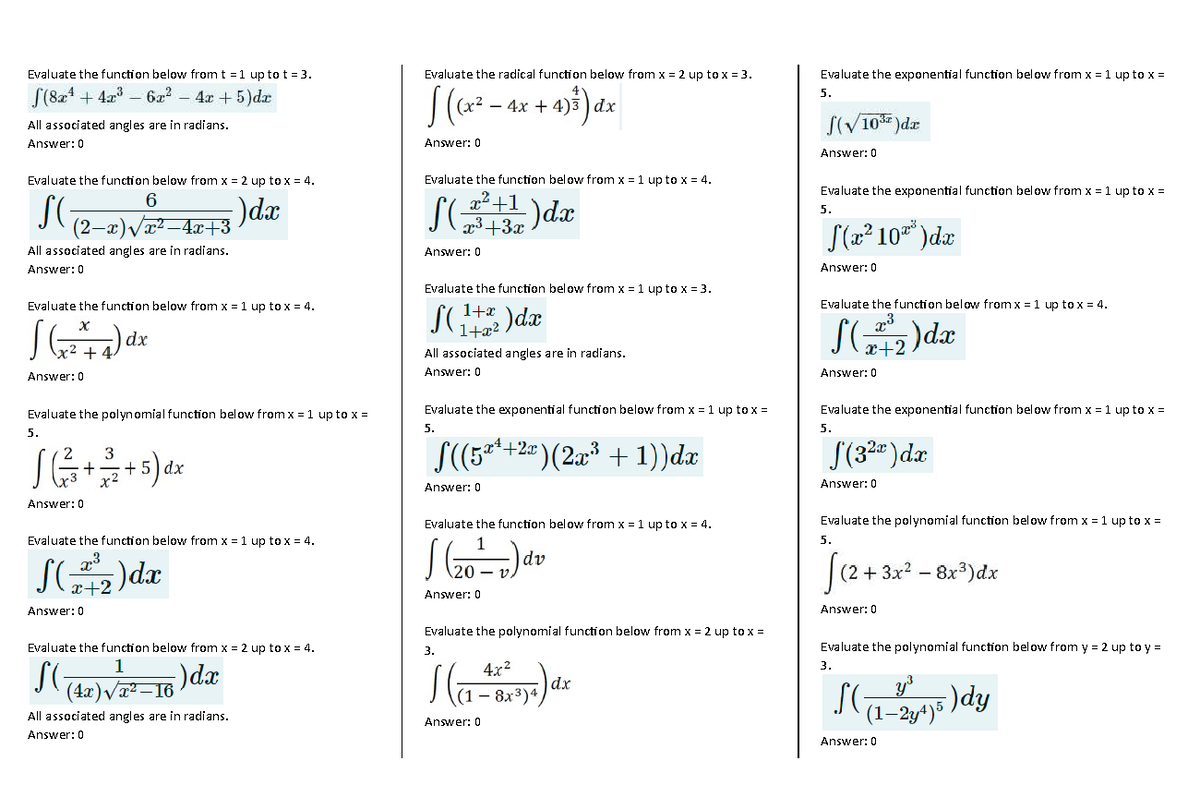 Evaluate the function below from t = 1 up to t = 3.
∫(8x⁴ + 4x³ − 6x² − 4x + 5)dx
All associated angles are in radians.
Answer: 0
Evaluate the function below from x = 2 up to x = 4.
∫(6/((2−x)√(x²−4x+3)))dx
All associated angles are in radians.
Answer: 0
Evaluate the function below from x = 1 up to x = 4.
∫(x/(x² + 4))dx
Answer: 0
Evaluate the polynomial function below from x = 1 up to x =
5.
∫(2/x³ + 3/x² + 5)dx
Answer: 0
Evaluate the function below from x = 1 up to x = 4.
∫(x³/(x+2))dx
Answer: 0
Evaluate the function below from x = 2 up to x = 4.
∫(1/((4x)√(x²−16)))dx
All associated angles are in radians.
Answer: 0
Evaluate the radical function below from x = 2 up to x = 3.
∫((x² − 4x + 4)^(4/3))dx
Answer: 0
Evaluate the function below from x = 1 up to x = 4.
∫((x²+1)/(x³+3x))dx
Answer: 0
Evaluate the function below from x = 1 up to x = 3.
∫((1+x)/(1+x²))dx
All associated angles are in radians.
Answer: 0
Evaluate the exponential function below from x = 1 up to x =
5.
∫((5^(x⁴+2x))(2x³ + 1))dx
Answer: 0
Evaluate the function below from x = 1 up to x = 4.
∫(1/(20 − v))dv
Answer: 0
Evaluate the polynomial function below from x = 2 up to x =
3.
∫(4x²/(1 − 8x³)⁴)dx
Answer: 0
Evaluate the exponential function below from x = 1 up to x =
5.
∫(√(10^(3x)))dx
Answer: 0
Evaluate the exponential function below from x = 1 up to x =
5.
∫(x² 10^(x³))dx
Answer: 0
Evaluate the function below from x = 1 up to x = 4.
∫(x³/(x+2))dx
Answer: 0
Evaluate the exponential function below from x = 1 up to x =
5.
∫(3^(2x))dx
Answer: 0
Evaluate the polynomial function below from x = 1 up to x =
5.
∫(2 + 3x² − 8x³)dx
Answer: 0
Evaluate the polynomial function below from y = 2 up to y =
3.
∫(y³/(1−2y⁴)⁵)dy
Answer: 0